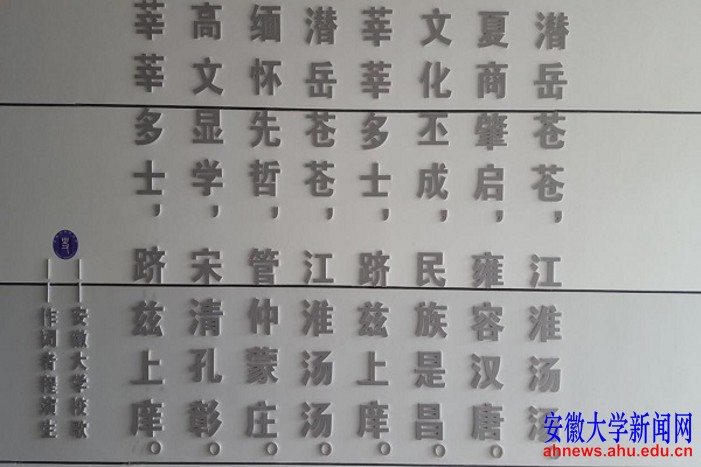 潜岳苍苍，江淮汤汤。
夏商肇启，雍容汉唐。
文化丕成，民族是昌。
莘莘多士，跻兹上庠。
潜岳苍苍，江淮汤汤。
缅怀先哲，管仲蒙庄。
高文显学，宋清孔彰。
莘莘多士，跻兹上庠。
——安徽大学校歌
——作词者程演生
安徽大学新闻网
ahnews.ahu.edu.cn